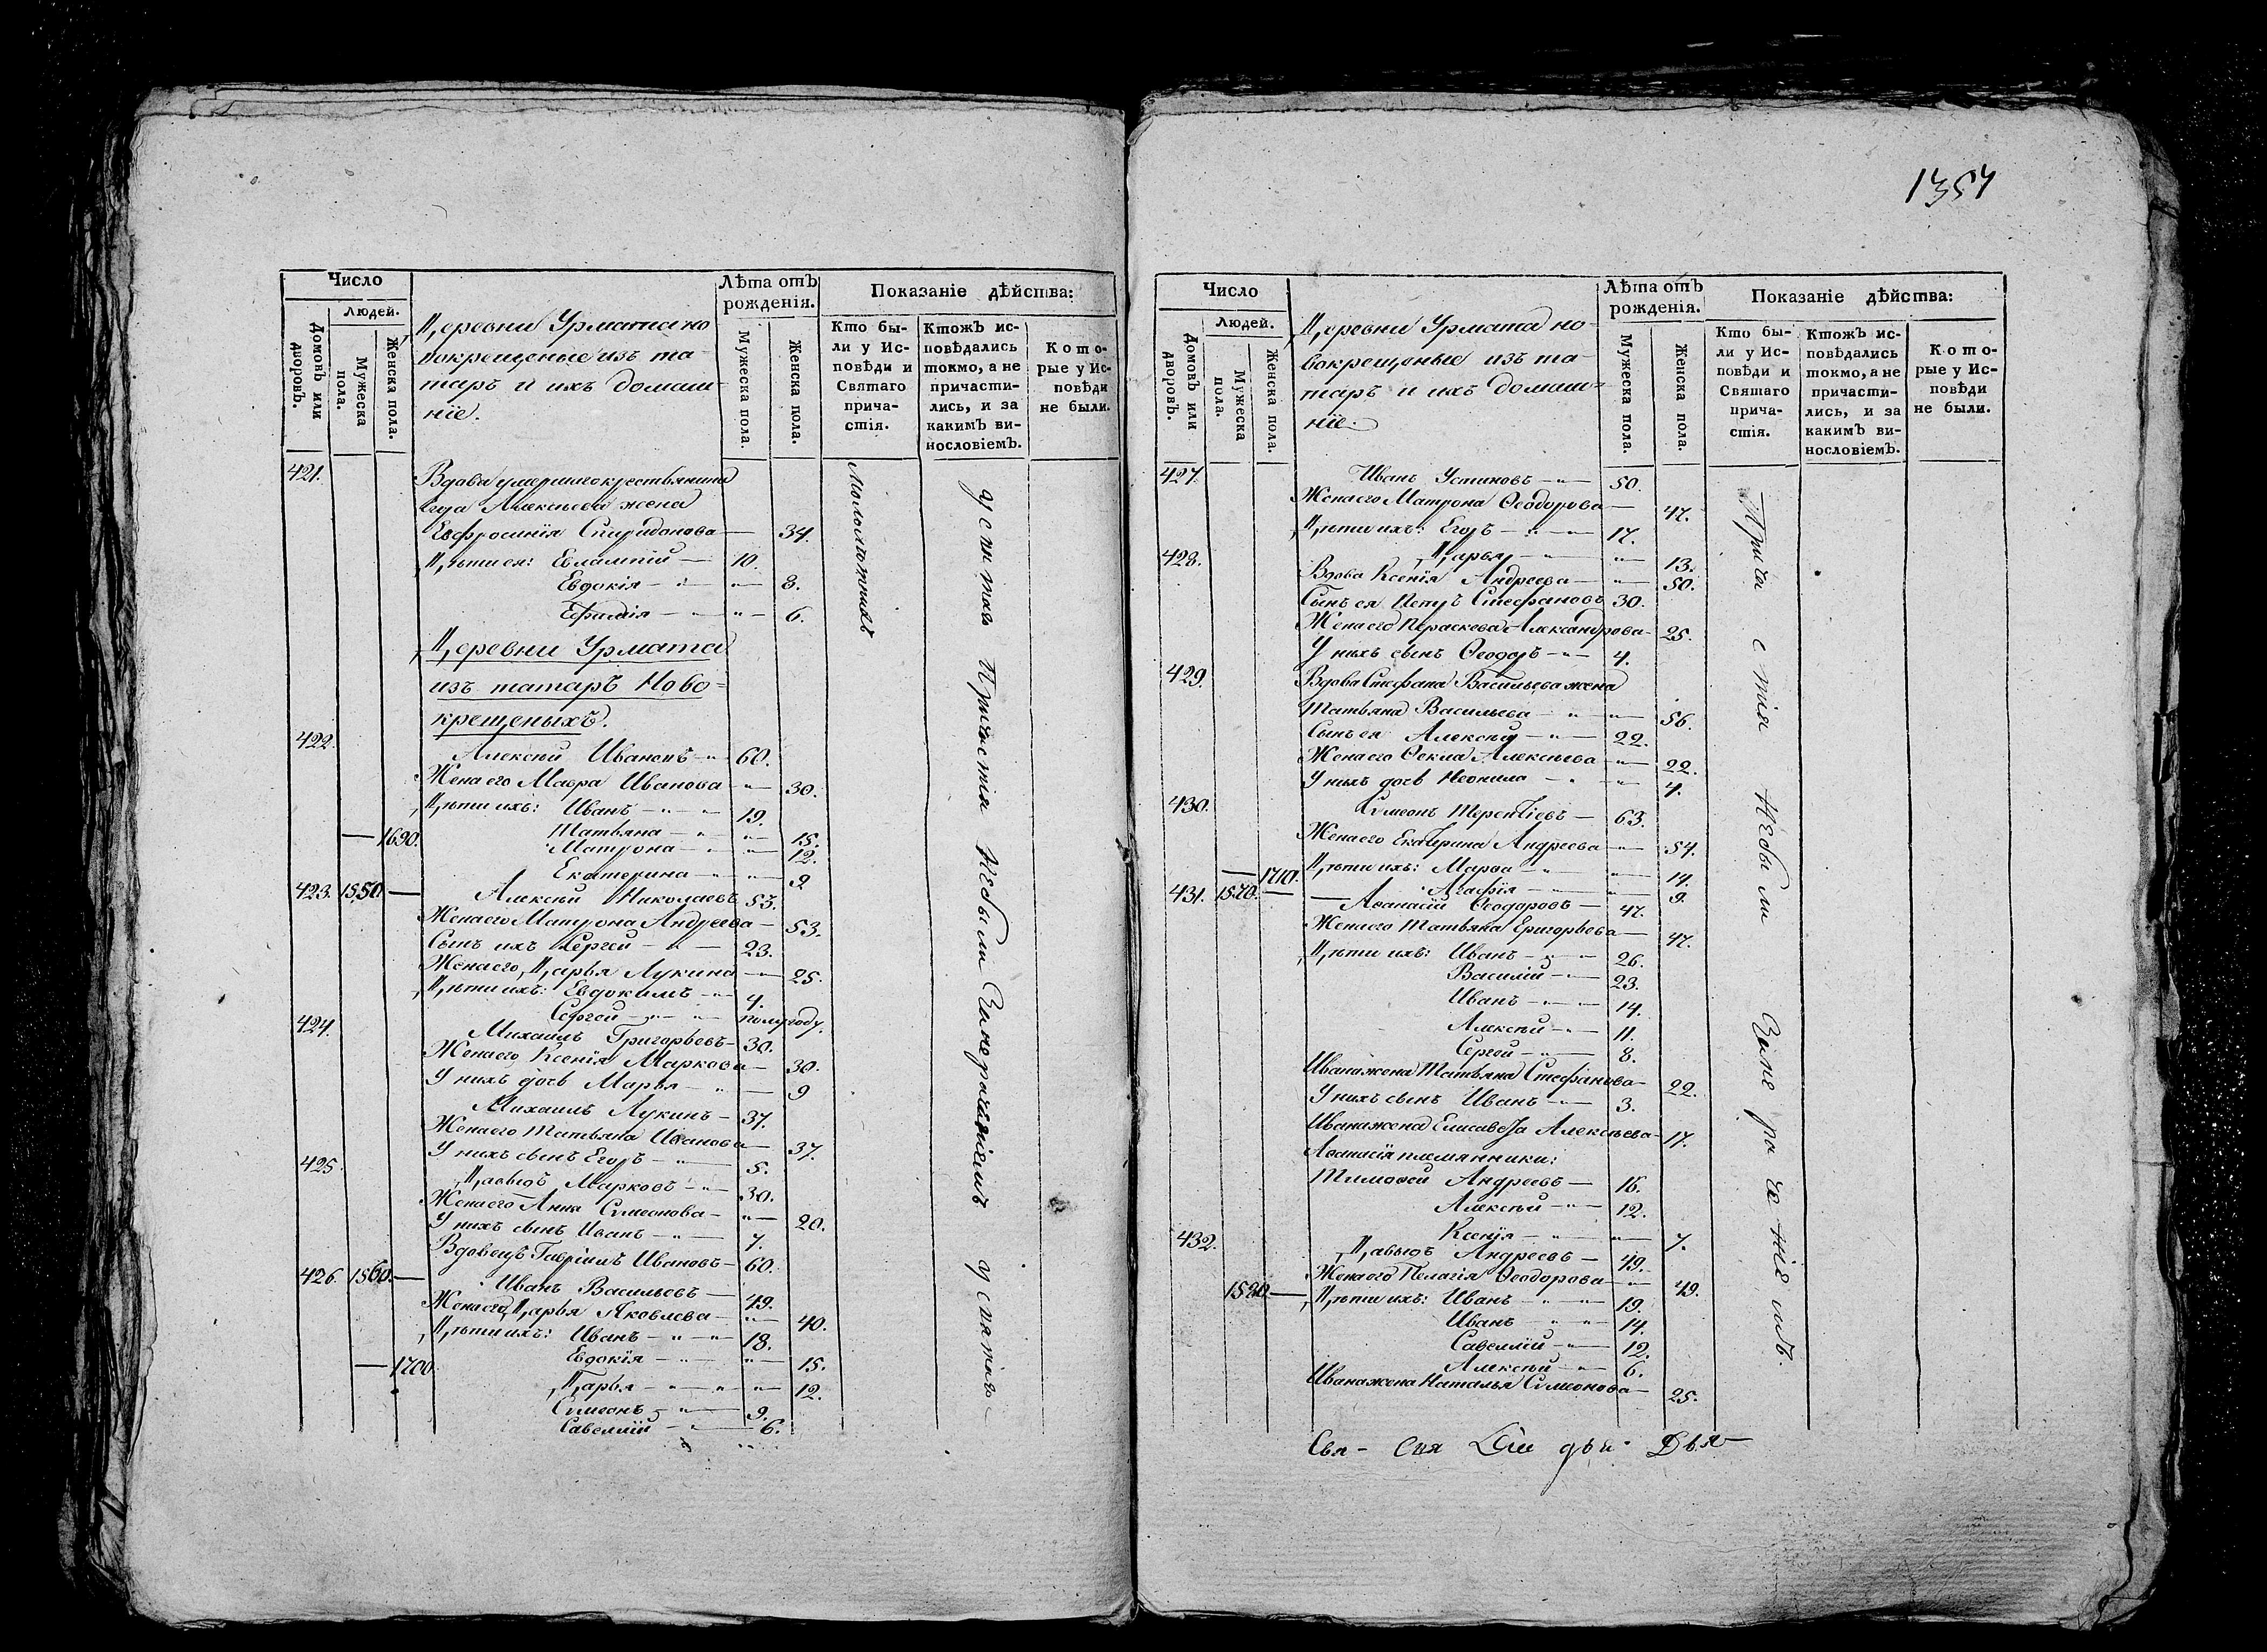 Число
Людей.
Домовъ или дворовъ.
Мужеска пола.
Женска пола.
Деревни Урмата но
вокрещеные изъ та-
таръ и ихъ домаш-
ніе.
Лѣта отъ рожденія.
Мужеска пола.
Женска пола.
Показаніе дѣйства:
Кто бы-
ли у Ис-
повѣди и
Святаго
прича-
стія.
Ктожъ ис-
повѣдались
токмо, а не
причасти-
лись, и за
какимъ ви-
нословіемъ.
Кото-
рые у Ис-
повѣди
не были.
421. Вдова умершаго крестьянина
Алексѣева жена
Евфросинія Спиридонова — 34.
Дѣти ея: Евлампій — 10.
Евдокія — 8.
Ефимія — 6.
Деревни Урмата
изъ татаръ Ново-
крещеныхъ.
422. Алексѣй Ивановъ 60.
Жена его Мавра Иванова — 30.
Дѣти ихъ: Иванъ — 19.
Татьяна — 15.
— 1690. Матрона — 12.
Екатерина — 2
423. 1550 — Алексѣй Николаевъ 53.
Жена его Матрона Андреева — 53.
Сынъ ихъ Сергей — 23.
Жена его Дарья Лукина — 25.
Дѣти ихъ: Евдокимъ — 4.
Сергей — полугоду.
424. Михаилъ Григорьевъ — 30.
Жена его Ксенія Маркова — 30.
У нихъ дочь Марья — 9
Михаилъ Лукинъ — 37.
Жена его Татьяна Иванова — 37.
У нихъ сынъ Егоръ — 5.
425. Давыдъ Марковъ — 30.
Жена его Анна Симеонова — 20.
У нихъ сынъ Иванъ — 7.
Вдовецъ Гавріилъ Ивановъ — 60.
426. 1560. — Иванъ Васильевъ — 49.
Жена его Дарья Яковлева — 40.
Дѣти ихъ: Иванъ — 18.
Евдокія — 15.
— 1700. Дарья — 12.
Симеонъ — 9.
Савеллій — 6.
Малолѣтныхъ
у святаго Причастія не были За нераченіемъ
1357
Число
Людей.
Домовъ или дворовъ.
Мужеска пола.
Женска пола.
Деревни Урмата но
вокрещеные изъ та-
таръ и ихъ домаш-
ніе.
Лѣта отъ рожденія.
Мужеска пола.
Женска пола.
Показаніе дѣйства:
Кто бы-
ли у Ис-
повѣди и
Святаго
прича-
стія.
Ктожъ ис-
повѣдались
токмо, а не
причасти-
лись, и за
какимъ ви-
нословіемъ.
Кото-
рые у Ис-
повѣди
не были.
427. Иванъ Устиновъ — 50.
Жена его Матрона Ѳеодорова — 47.
Дѣти ихъ: Егоръ — 17.
Дарья — 13.
428. Вдова Ксенія Андреева — 50.
Сынъ ея Петръ Стефановъ 30.
Жена его Параскева Александрова — 25.
У нихъ сынъ Ѳеодоръ — 4.
429. Вдова Стефана Васильева жена
Татьяна Васильева — 56.
Сынъ ея Алексѣй — 22.
Жена его Ѳекла Алексѣева — 22.
У нихъ дочь Неонила — 4.
430. Симеонъ Терентіевъ — 63.
Жена его Екатерина Андреева — 54.
Дѣти ихъ: Марѳа — 14.
— 1710. Агафія — 9.
431. 1570. — Аѳанасій Ѳеодоровъ — 47.
Жена его Татьяна Григорьева — 47.
Дѣти ихъ: Иванъ — 26.
Василій — 23.
Иванъ — 14.
Алексѣй — 11.
Сергей — 8.
Ивана жена Татьяна Стефанова — 22.
У нихъ сынъ Иванъ — 3.
Ивана жена Елисавета Алексѣева — 17.
Аѳанасія племянники:
Тимоѳей Андреевъ — 16.
Алексѣй — 12.
Ксенія — 7.
432. Давыдъ Андреевъ — 49.
Жена его Пелагія Ѳеодорова — 49.
1580 — Дѣти ихъ: Иванъ — 19.
Иванъ — 14.
Савеллій — 12.
Алексѣй — 6.
Ивана жена Наталья Симеонова — 25.
Причастія не были За не раченіемъ.